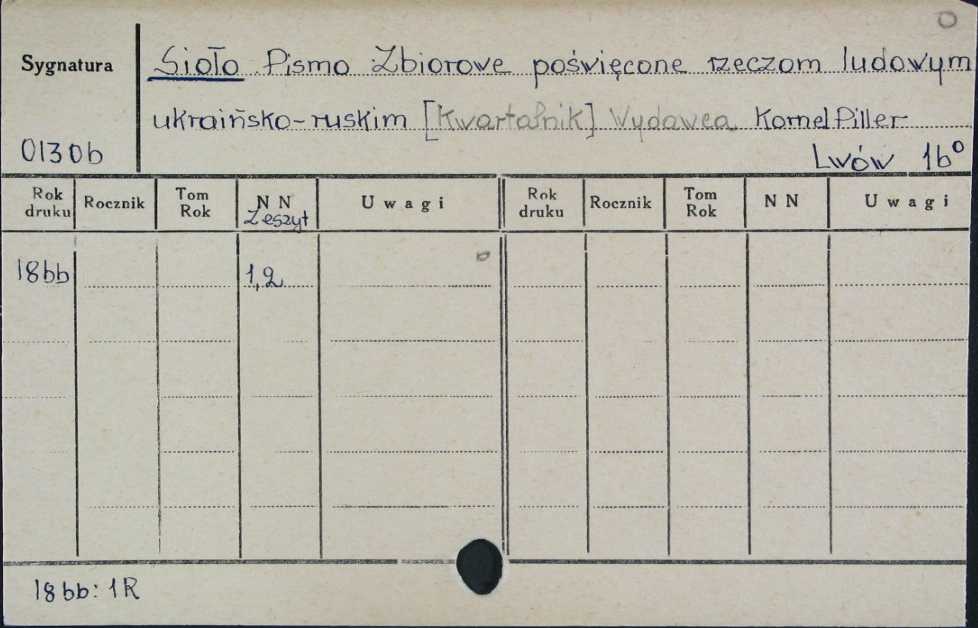 Sygnatura
Sioło Pismo Zbiorowe poświęcone rzeczom ludowym
ukraińsko-ruskim [Kwartalnik] Wydawca Kornel Piller
01306
Lwów 16°
Rok druku Rocznik Tom Rok NN Zeszyt Uwagi Rok druku Rocznik Tom Rok NN Uwagi
1866 1,2
1866: 1R